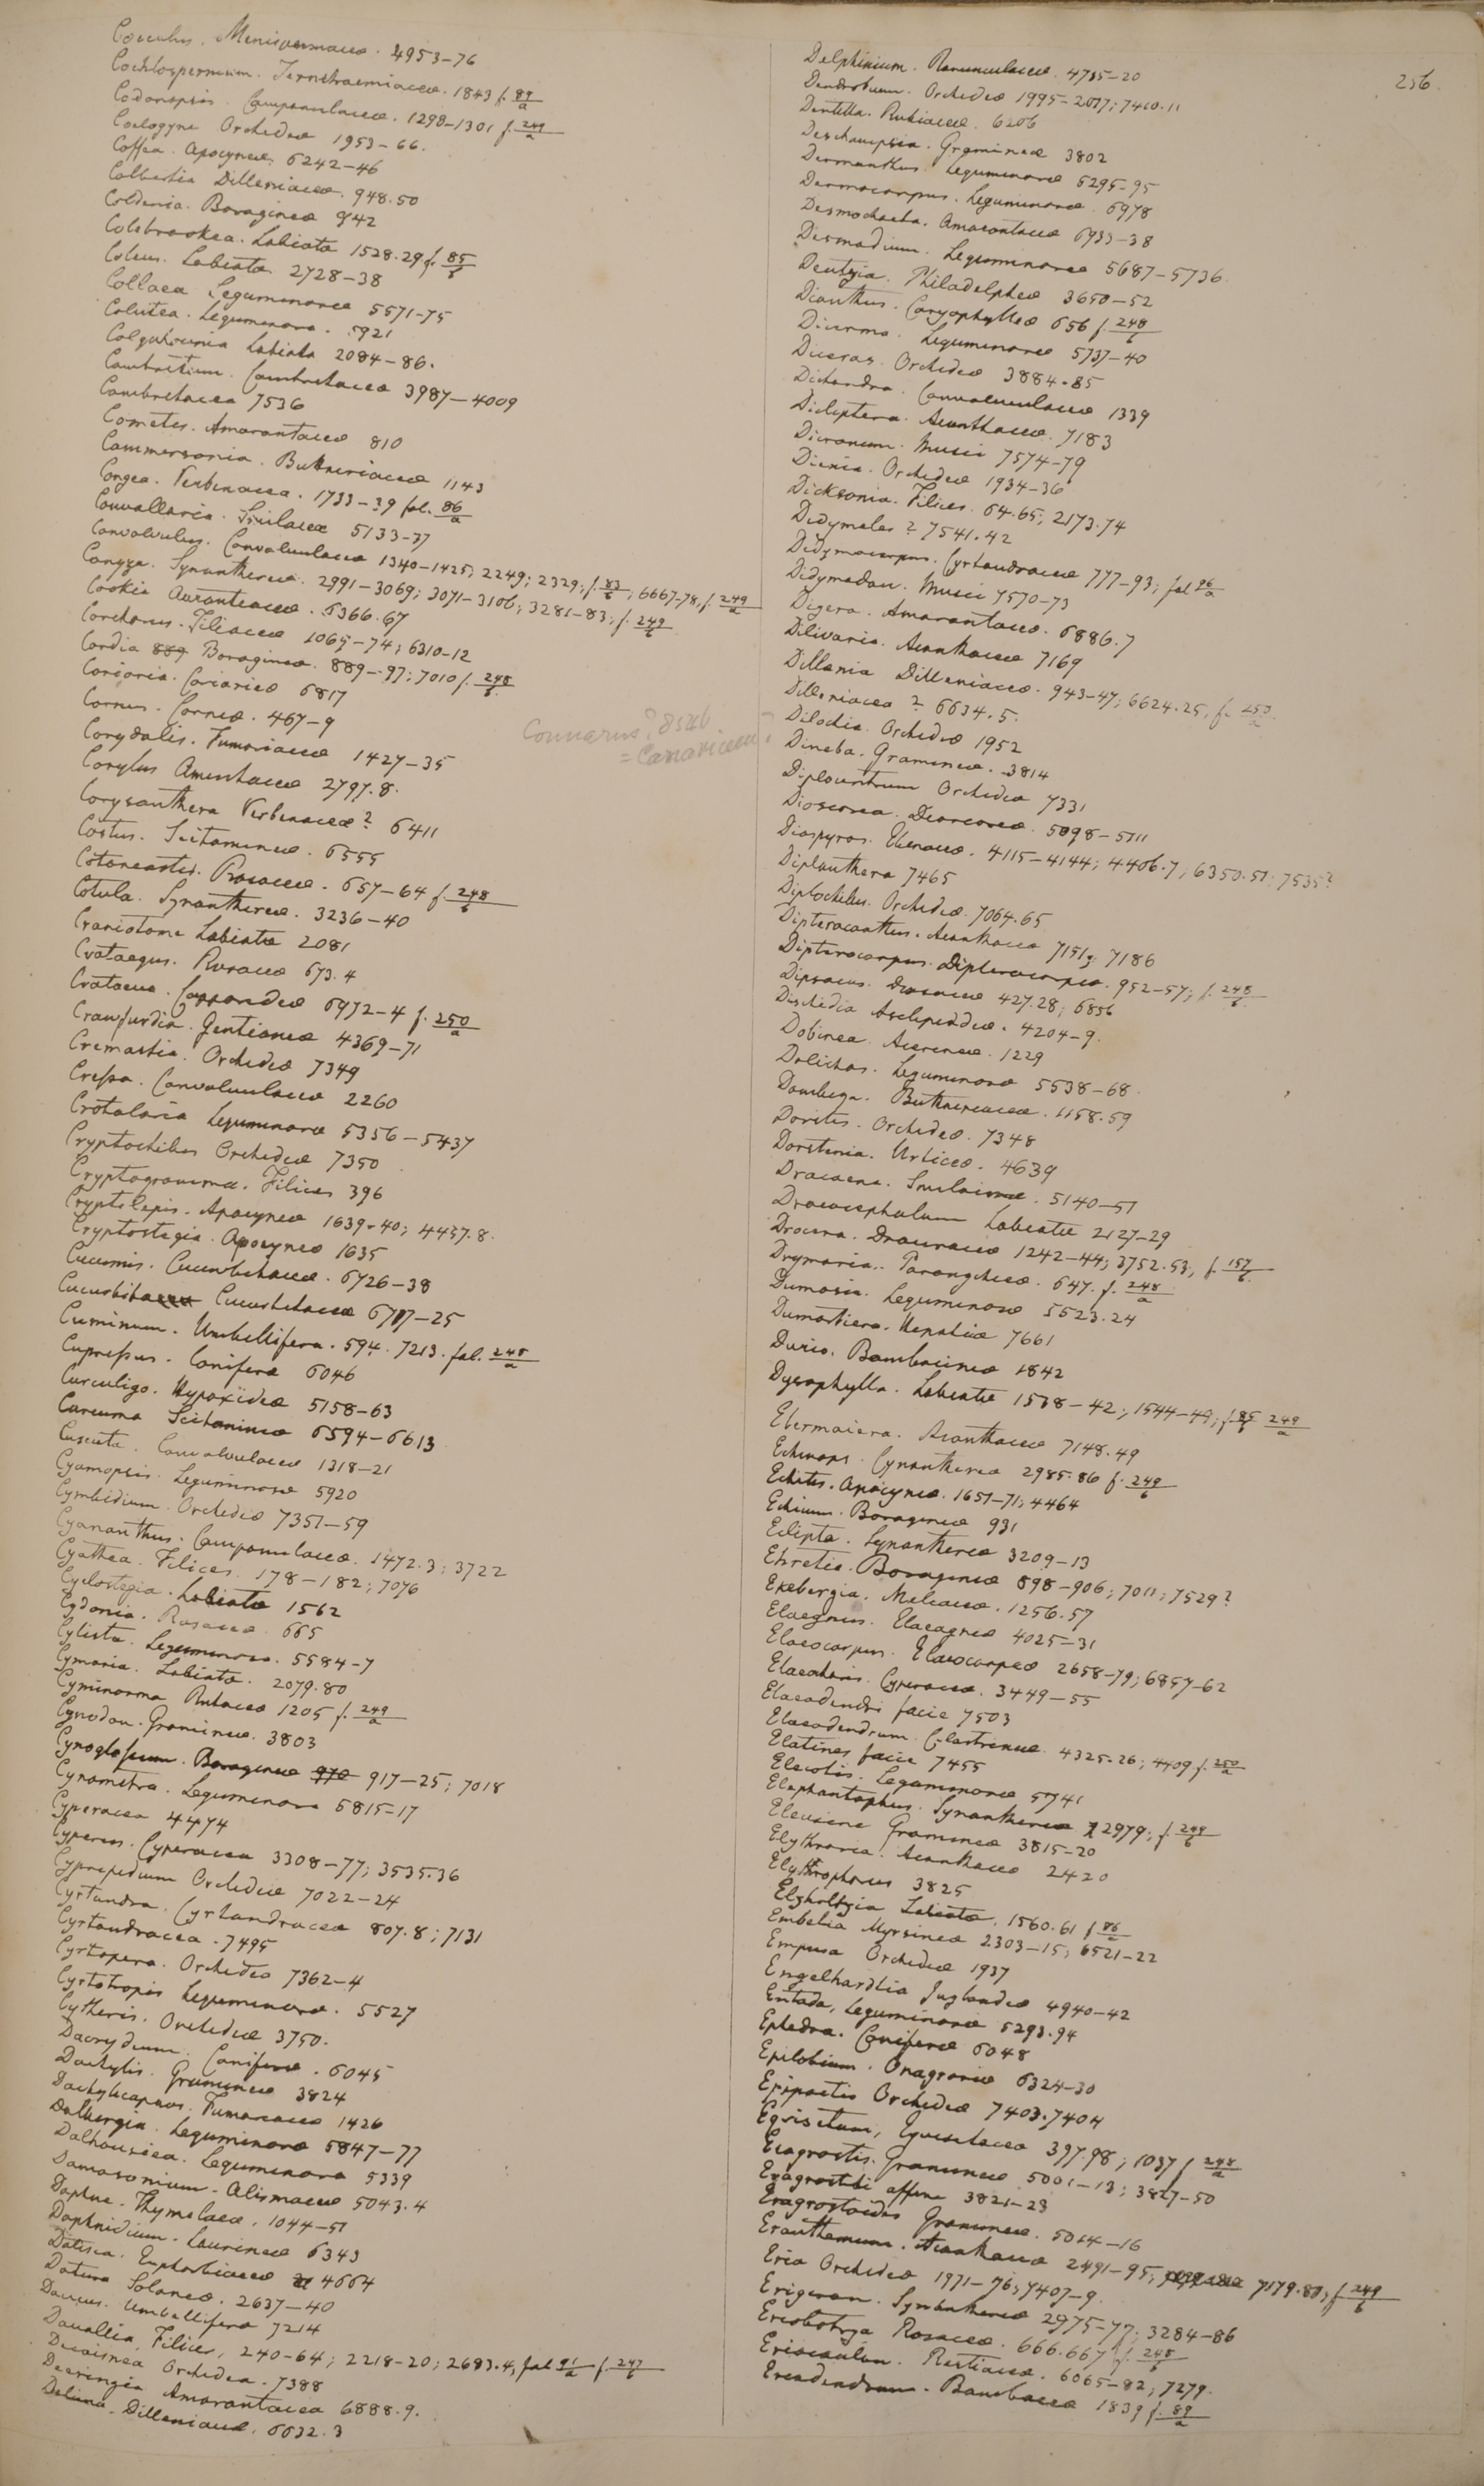 256.
Cocculus. Menispermaceæ. 4953-76
Cochlospermum. Ternstraemiaceæ. 1843 f. 89/a
Codonopsis. Campanulaceæ. 1298-1301 f. 249/a
Coelogyne Orchideæ 1953-66.
Coffea. Apocyneæ. 6242-46
Colbertia Dilleniaceæ. 948.50
Coldenia. Boragineæ 942
Colebrookea. Labiatæ 1528.29 f. 85/b
Coleus. Labiatæ. 2728-38
Collaea Leguminosæ 5571-75
Colutea. Leguminosæ. 5921
Colquhounia Labiatæ 2084-86.
Combretum. Combretaceæ 3987-4009
Combretacea 7536
Cometes. Amarantaceæ 810
Commersonia. Buttneriaceæ 1143
Congea. Verbenacea. 1733-39 fol. 86/a
Convallaria. Smilaceæ 5133-37
Convolvulus. Convolvulaceæ 1340-1425; 2249; 2329; f. 83/b; 6667-78, f. 249/a
Conyza. Synanthereæ. 2991-3069; 3071-3106; 3281-83; f. 249/b
Cookia Auranteaceæ. 6366.67
Corchorus. Tiliaceæ 1065-74; 6310-12
Cordia 889 Boragineæ. 889-97; 7010 f. 248/b
Coriaria. Coriarieæ 6817
Cornus. Corneæ. 467-9
Connarus? 8526
= Canarium?
Corydalis. Fumariaceæ 1427-35
Corylus Amentaceæ 2797.8.
Corysanthera Verbenaceæ? 6411
Costus. Scitamineæ. 6555
Cotoneaster. Rosaceæ. 657-64 f. 248/b
Cotula. Synanthereæ. 3236-40
Craniotome Labiatæ 2081
Crataegus. Rosaceæ 673.4
Crataeva. Capparideæ 6972-4 f. 250/a
Crawfurdia. Gentianeæ 4369-71
Cremastra. Orchideæ 7349
Cressa. Convolvulaceæ 2260
Crotalaria Leguminosæ 5356-5437
Cryptochilus Orchideæ 7350
Cryptogramma. Filices 396
Cryptolepis. Apocyneæ 1639-40; 4457.8.
Cryptostegia. Apocyneæ 1635
Cucumis. Cucurbitaceæ. 6726-38
Cucurbitacea Cucurbitaceæ 6707-25
Cuminum. Umbelliferæ. 594. 7213. fol. 248/a
Cupressus. Coniferæ 6046
Curculigo. Hypoxideæ 5758-63
Curcuma Scitamineæ 6594-6613
Cuscuta. Convolvulaceæ 1318-21
Cyamopsis. Leguminosæ 5920
Cymbidium. Orchideæ 7351-59
Cyananthus. Campanulaceæ. 1472.3; 3722
Cyathea. Filices. 178-182; 7076
Cyclostegia. Labiatæ 1562
Cydonia. Rosaceæ. 665
Cylista. Leguminosæ. 5584-7
Cymaria. Labiatæ. 2079.80
Cyminosma Rutaceæ 1205 f. 249/a
Cynodon. Gramineæ. 3803
Cynoglossum. Boragineæ 970 917-25; 7018
Cynometra. Leguminosæ 5815-17
Cyperacea 4474
Cyperus. Cyperaceæ 3308-77; 3535.36
Cyprepedium Orchideæ 7022-24
Cyrtandra. Cyrtandraceæ 807.8; 7131
Cyrtandracea. 7495
Cyrtopera. Orchideæ 7362-4
Cyrtotropis Leguminosæ. 5527
Cytheris. Orchideæ 3750.
Dacrydium. Coniferæ. 6045
Dactylis. Gramineæ 3824
Dactylicapnos. Fumariaceæ 1426
Dalbergia. Leguminosæ 5847-77
Dalhousiea. Leguminosæ 5339
Damasonium. Alismaceæ 5043.4
Daphne. Thymelaeæ. 1044-51
Daphnidium. Laurineæ 6343
Datisca. Euphorbiaceæ 4664
Datura Solaneæ. 2637-40
Daucus. Umbelliferæ 7214
Davallia. Filices, 240-64; 2218-20; 2683.4, fol 91/a f. 247/b
Decaisnea Orchidea. 7388
Deeringia Amarantacea 6888.9.
Delima. Dilleniaceæ, 6632.3
Delphinium. Ranunculaceæ. 4715-20
Dendrobium. Orchideæ 1995-2017; 7410.11
Dentella. Rubiaceæ. 6206
Deschampsia. Gramineæ 3802
Desmanthus. Leguminosæ 5295-95
Dermocarpus. Leguminosæ. 6978
Desmochaeta. Amarantaceæ 6933-38
Desmodium. Leguminosæ 5687-5736
Deutzia. Philadelpheæ 3650-52
Dianthus. Caryophylleæ 656 f. 248/b
Dicerma. Leguminosæ 5737-40
Diceras. Orchideæ 3884.85
Dichondra. Convolvulaceæ 1339
Dicliptera. Acanthaceæ. 7183
Dicranum. Musci 7574-79
Dienia. Orchideæ 1934-36
Dicksonia. Filices. 64.65; 2173.74
Didymeles? 7541.42
Didymocarpus. Cyrtandraceæ 777-93; fol 86/a
Didymodon. Musci 7570-73
Digera. Amarantaceæ. 6886.7
Dilivaria. Acanthaceæ 7169
Dillenia Dilleniaceæ. 943-47; 6624.25, f. 250/a
Dilleniacea? 6634.5.
Dilochia. Orchideæ 1952
Dineba. Gramineæ. 3814
Diplocentrum Orchidea 7331
Dioscorea. Dioscoreæ. 5098-5111
Diospyros. Ebenaceæ. 4115-4144; 4406.7; 6350.51; 7535?
Diplanthera 7465
Diplochilus. Orchideæ. 7064.65
Dipteracanthus. Acanthaceæ 7151; 7186
Dipterocarpus. Dipterocarpeæ. 952-57; f. 248/b
Dipsacus. Dipsaceæ 427.28; 6856
Dischidia Asclepiadeæ. 4204-9.
Dobinea. Acerineæ. 1229
Dolichos. Leguminosæ 5538-68.
Dombeya. Buttneriaceæ. 1158.59
Doritis. Orchideæ. 7348
Dorstenia. Urticeæ. 4639
Dracaena. Smilacineæ. 5140-51
Dracocephalum Labiatæ 2127-29
Drosera. Droseraceæ 1242-44; 3752.53, f. 157/b
Drymaria. Paronychieæ. 647. f. 248/a
Dumasia. Leguminosæ 5523.24
Dumortiera. Hepaticæ 7661
Durio. Bombacineæ 1842
Dysophylla. Labiatæ 1538-42; 1544-49; f. 85/b 249/a
Ebermaiera. Acanthaceæ 7148.49
Echinops. Cynanthereæ 2985.86 f. 249/b
Echites. Apocyneæ. 1651-71; 4464
Echium. Boragineæ 931
Eclipta. Synanthereæ 3209-13
Ehretia. Boragineæ 898-906; 7011; 7529?
Ekebergia. Meliaceæ. 1256.57
Elaegnus. Elaeagneæ 4025-31
Elaeocarpus. Elaeocarpeæ 2658-79; 6857-62
Elaeocharis. Cyperaceæ. 3449-55
Elaeodendri facie 7503
Elaeodendrum. Celastrineæ. 4325.26; 4409. f. 250/a
Elatines facie 7455
Eleiotis. Leguminosæ 5741
Elephantophus. Synanthereæ 2979; f. 249/b
Eleusine Gramineæ 3815-20
Elythraria. Acanthaceæ 2420
Elythrophorus 3825
Elsholtzia Labiatæ, 1560.61 f 86/a
Embelia Myrsineæ 2303-15; 6521-22
Empusa Orchideæ 1937
Engelhardtia Juglandeæ 4940-42
Entada, Leguminosæ 5293.94
Ephedra. Coniferæ 6048
Epilobium. Onagrariæ 6324-30
Epipactis Orchideæ 7403.7404
Equisetum, Equisetaceæ 397.98; 1037 f 248/a
Eragrostis. Gramineæ 5001-13; 3827-50
Eragrostidi affine 3821-23
Eragrostoides Gramineæ. 5014-16
Eranthemum. Acanthaceæ 2491-95; 7179.80; f. 249/b
Eria Orchideæ 1971-76; 7407-9.
Erigeron. Synanthereæ 2975-77; 3284-86
Eriobotrya Rosaceæ. 666.667 f. 248/b
Eriocaulon. Restiaceæ. 6065-82; 7279.
Eriodendrum. Bombaceæ 1839 f. 89/a